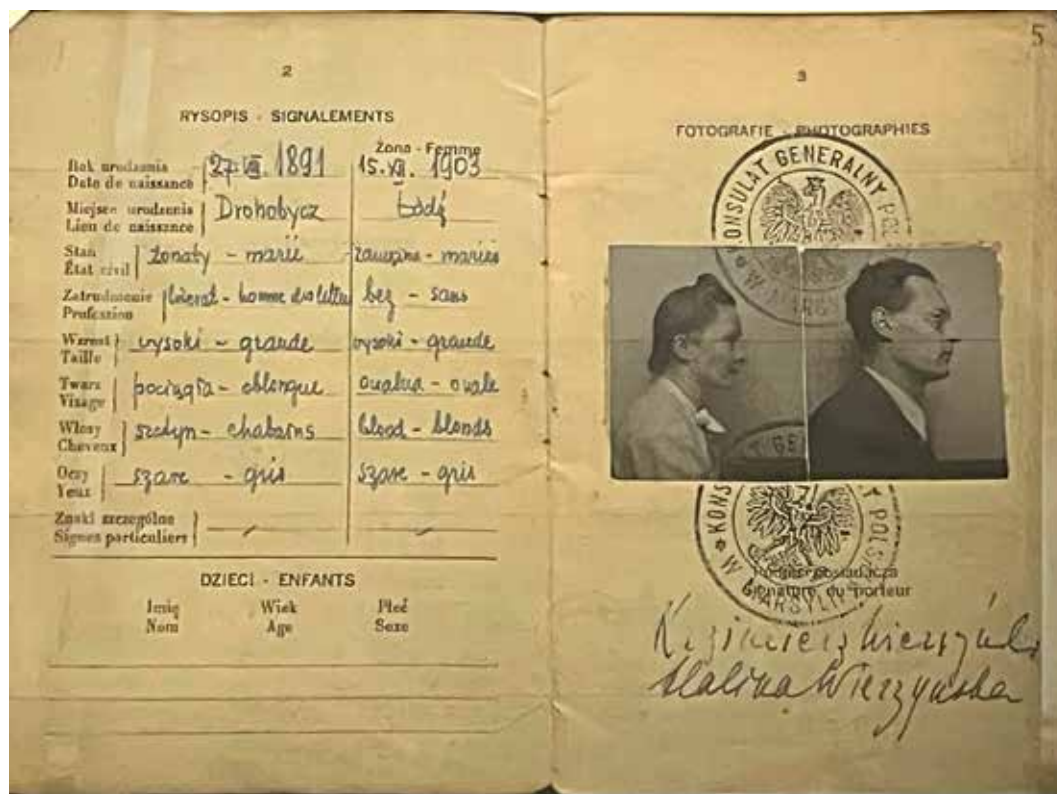 5
2
RYSOPIS - SIGNALEMENTS
Żona - Femme
Rok urodzenia
Date de naissance
27. VIII. 1891
15. XII. 1903
Miejsce urodzenia
Lieu de naissance
Drohobycz
Łódź
Stan
État civil
żonaty - marié
zamężna - mariée
Zatrudnienie
Profession
literat - homme des lettres
bez - sans
Wzrost
Taille
wysoki - grande
wysoki - grande
Twarz
Visage
pociągła - oblongue
owalna - ovale
Włosy
Cheveux
szatyn - chatains
blond - blonds
Oczy
Yeux
szare - gris
szare - gris
Znaki szczególne
Signes particuliers
DZIECI - ENFANTS
Imię Wiek Płeć
Nom Age Sexe
3
FOTOGRAFIE - PHOTOGRAPHIES
KONSULAT GENERALNY
W MARSYLII
Podpis posiadacza
Signature du porteur
Kazimierz Wierzyński
Halina Wierzyńska